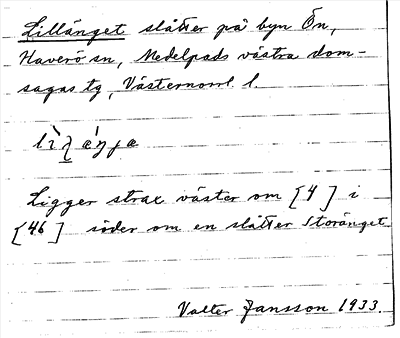 Lillänget slåtter på byn Ön,
Haverö sn, Medelpads västra dom-
sagas tg, Västernorrl. l.
Ligger strax väster om [4] i
[46] söder om en slåtter Storänget
Valter Jansson 1933.